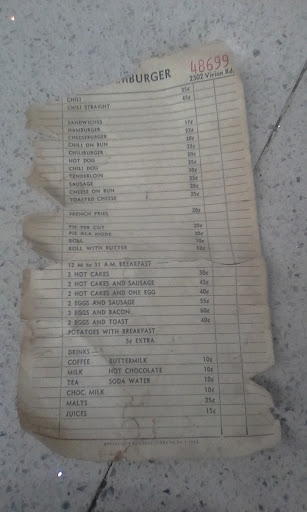 MBURGER 48699
2302 Vivion Rd.
CHILI 35¢
CHILI STRAIGHT 45¢
SANDWICHES
HAMBURGER
CHEESEBURGER
CHILI ON BUN
CHILIBURGER
HOT DOG
CHILI DOG
TENDERLOIN
SAUSAGE
CHEESE ON BUN
TOASTED CHEESE
FRENCH FRIES 20¢
PIE PER CUT
PIE ALA MODE
ROLL
ROLL WITH BUTTER
12 M to 11 A.M. BREAKFAST
3 HOT CAKES 30¢
2 HOT CAKES AND SAUSAGE 45¢
2 HOT CAKES AND ONE EGG 40¢
2 EGGS AND SAUSAGE 55¢
2 EGGS AND BACON 60¢
2 EGGS AND TOAST 40¢
POTATOES WITH BREAKFAST
5¢ EXTRA
DRINKS—
COFFEE BUTTERMILK 10¢
MILK HOT CHOCOLATE 10¢
TEA SODA WATER 10¢
CHOC. MILK 10¢
MALTS 25¢
JUICES 15¢